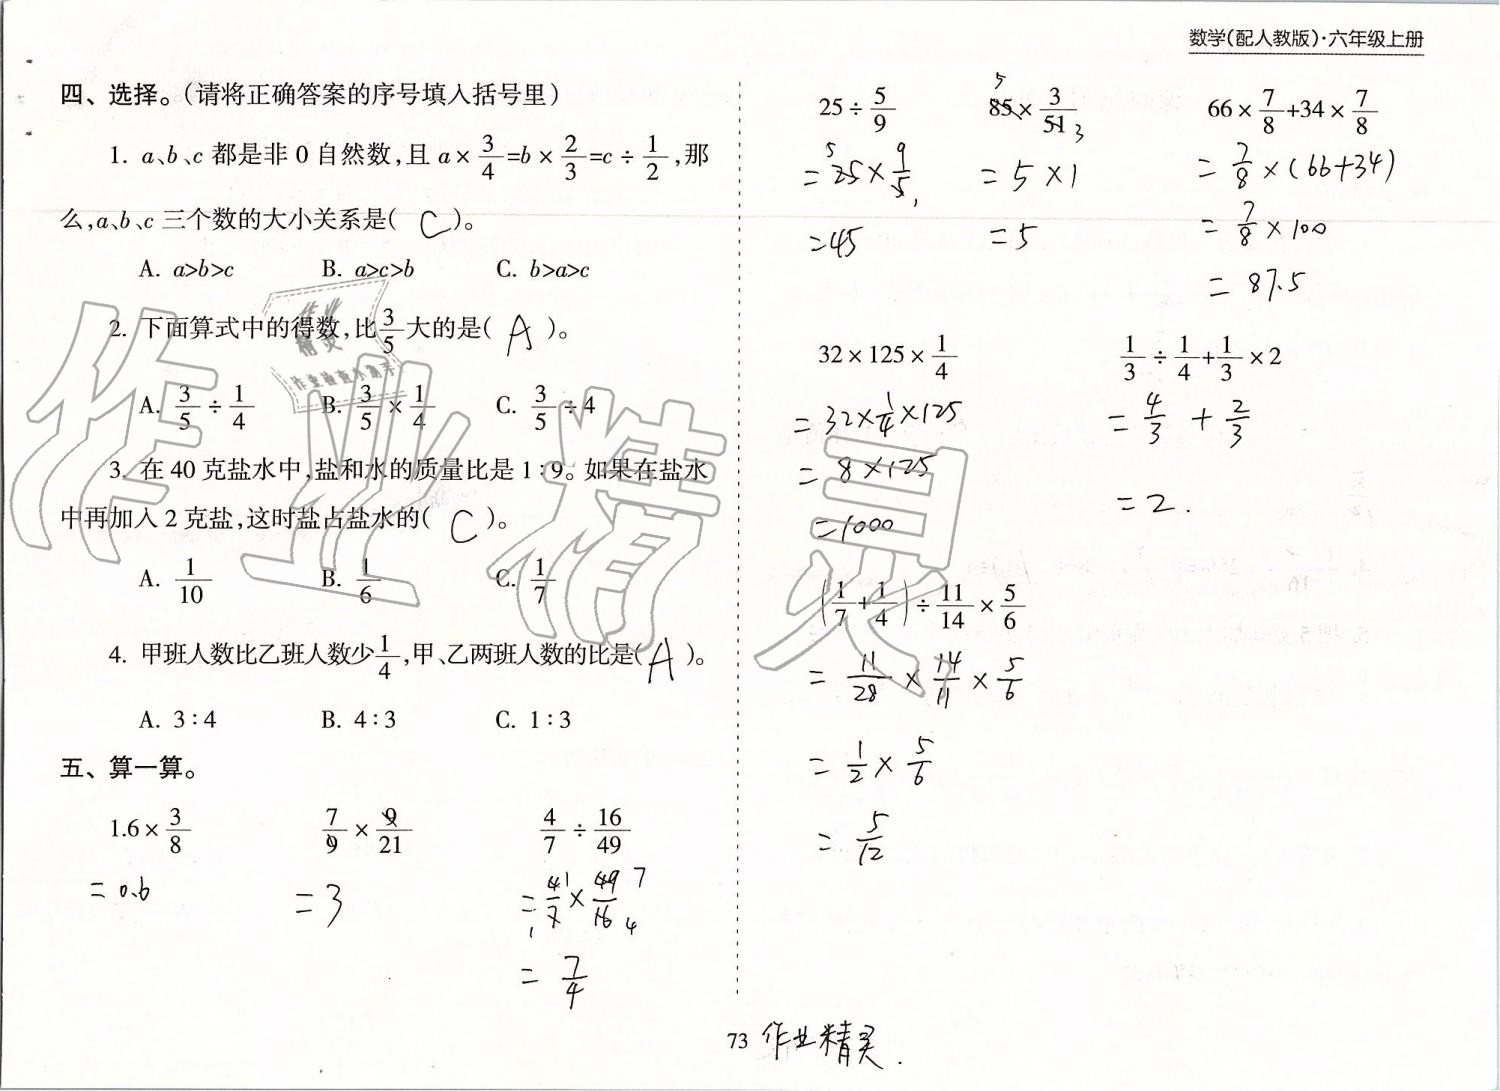 数学(配人教版)·六年级上册
四、选择。(请将正确答案的序号填入括号里)
1. a、b、c 都是非 0 自然数,且 a × 3/4 = b × 2/3 = c ÷ 1/2 ,那
么,a、b、c 三个数的大小关系是( C )。
A. a>b>c B. a>c>b C. b>a>c
2. 下面算式中的得数,比 3/5 大的是( A )。
A. 3/5 ÷ 1/4 B. 3/5 × 1/4 C. 3/5 ÷ 4
3. 在 40 克盐水中,盐和水的质量比是 1∶9。如果在盐水
中再加入 2 克盐,这时盐占盐水的( C )。
A. 1/10 B. 1/6 C. 1/7
4. 甲班人数比乙班人数少 1/4 ,甲、乙两班人数的比是( A )。
A. 3∶4 B. 4∶3 C. 1∶3
五、算一算。
1.6 × 3/8 7/9 × 9/21 4/7 ÷ 16/49
= 0.6 = 3 = 4/7 × 49/16
1 7 1 4
= 7/4
25 ÷ 5/9 85 × 3/51 66 × 7/8 + 34 × 7/8
5 3
= 25 × 9/5 = 5 × 1 = 7/8 × (66+34)
5 1
= 45 = 5 = 7/8 × 100
= 87.5
32 × 125 × 1/4 1/3 ÷ 1/4 + 1/3 × 2
= 32 × 1/4 × 125 = 4/3 + 2/3
= 8 × 125 = 2.
= 1000
(1/7 + 1/4) ÷ 11/14 × 5/6
= 11/28 × 14/11 × 5/6
= 1/2 × 5/6
= 5/12
73 作业精灵.
作业精灵
作业
精灵
作业检查小助手